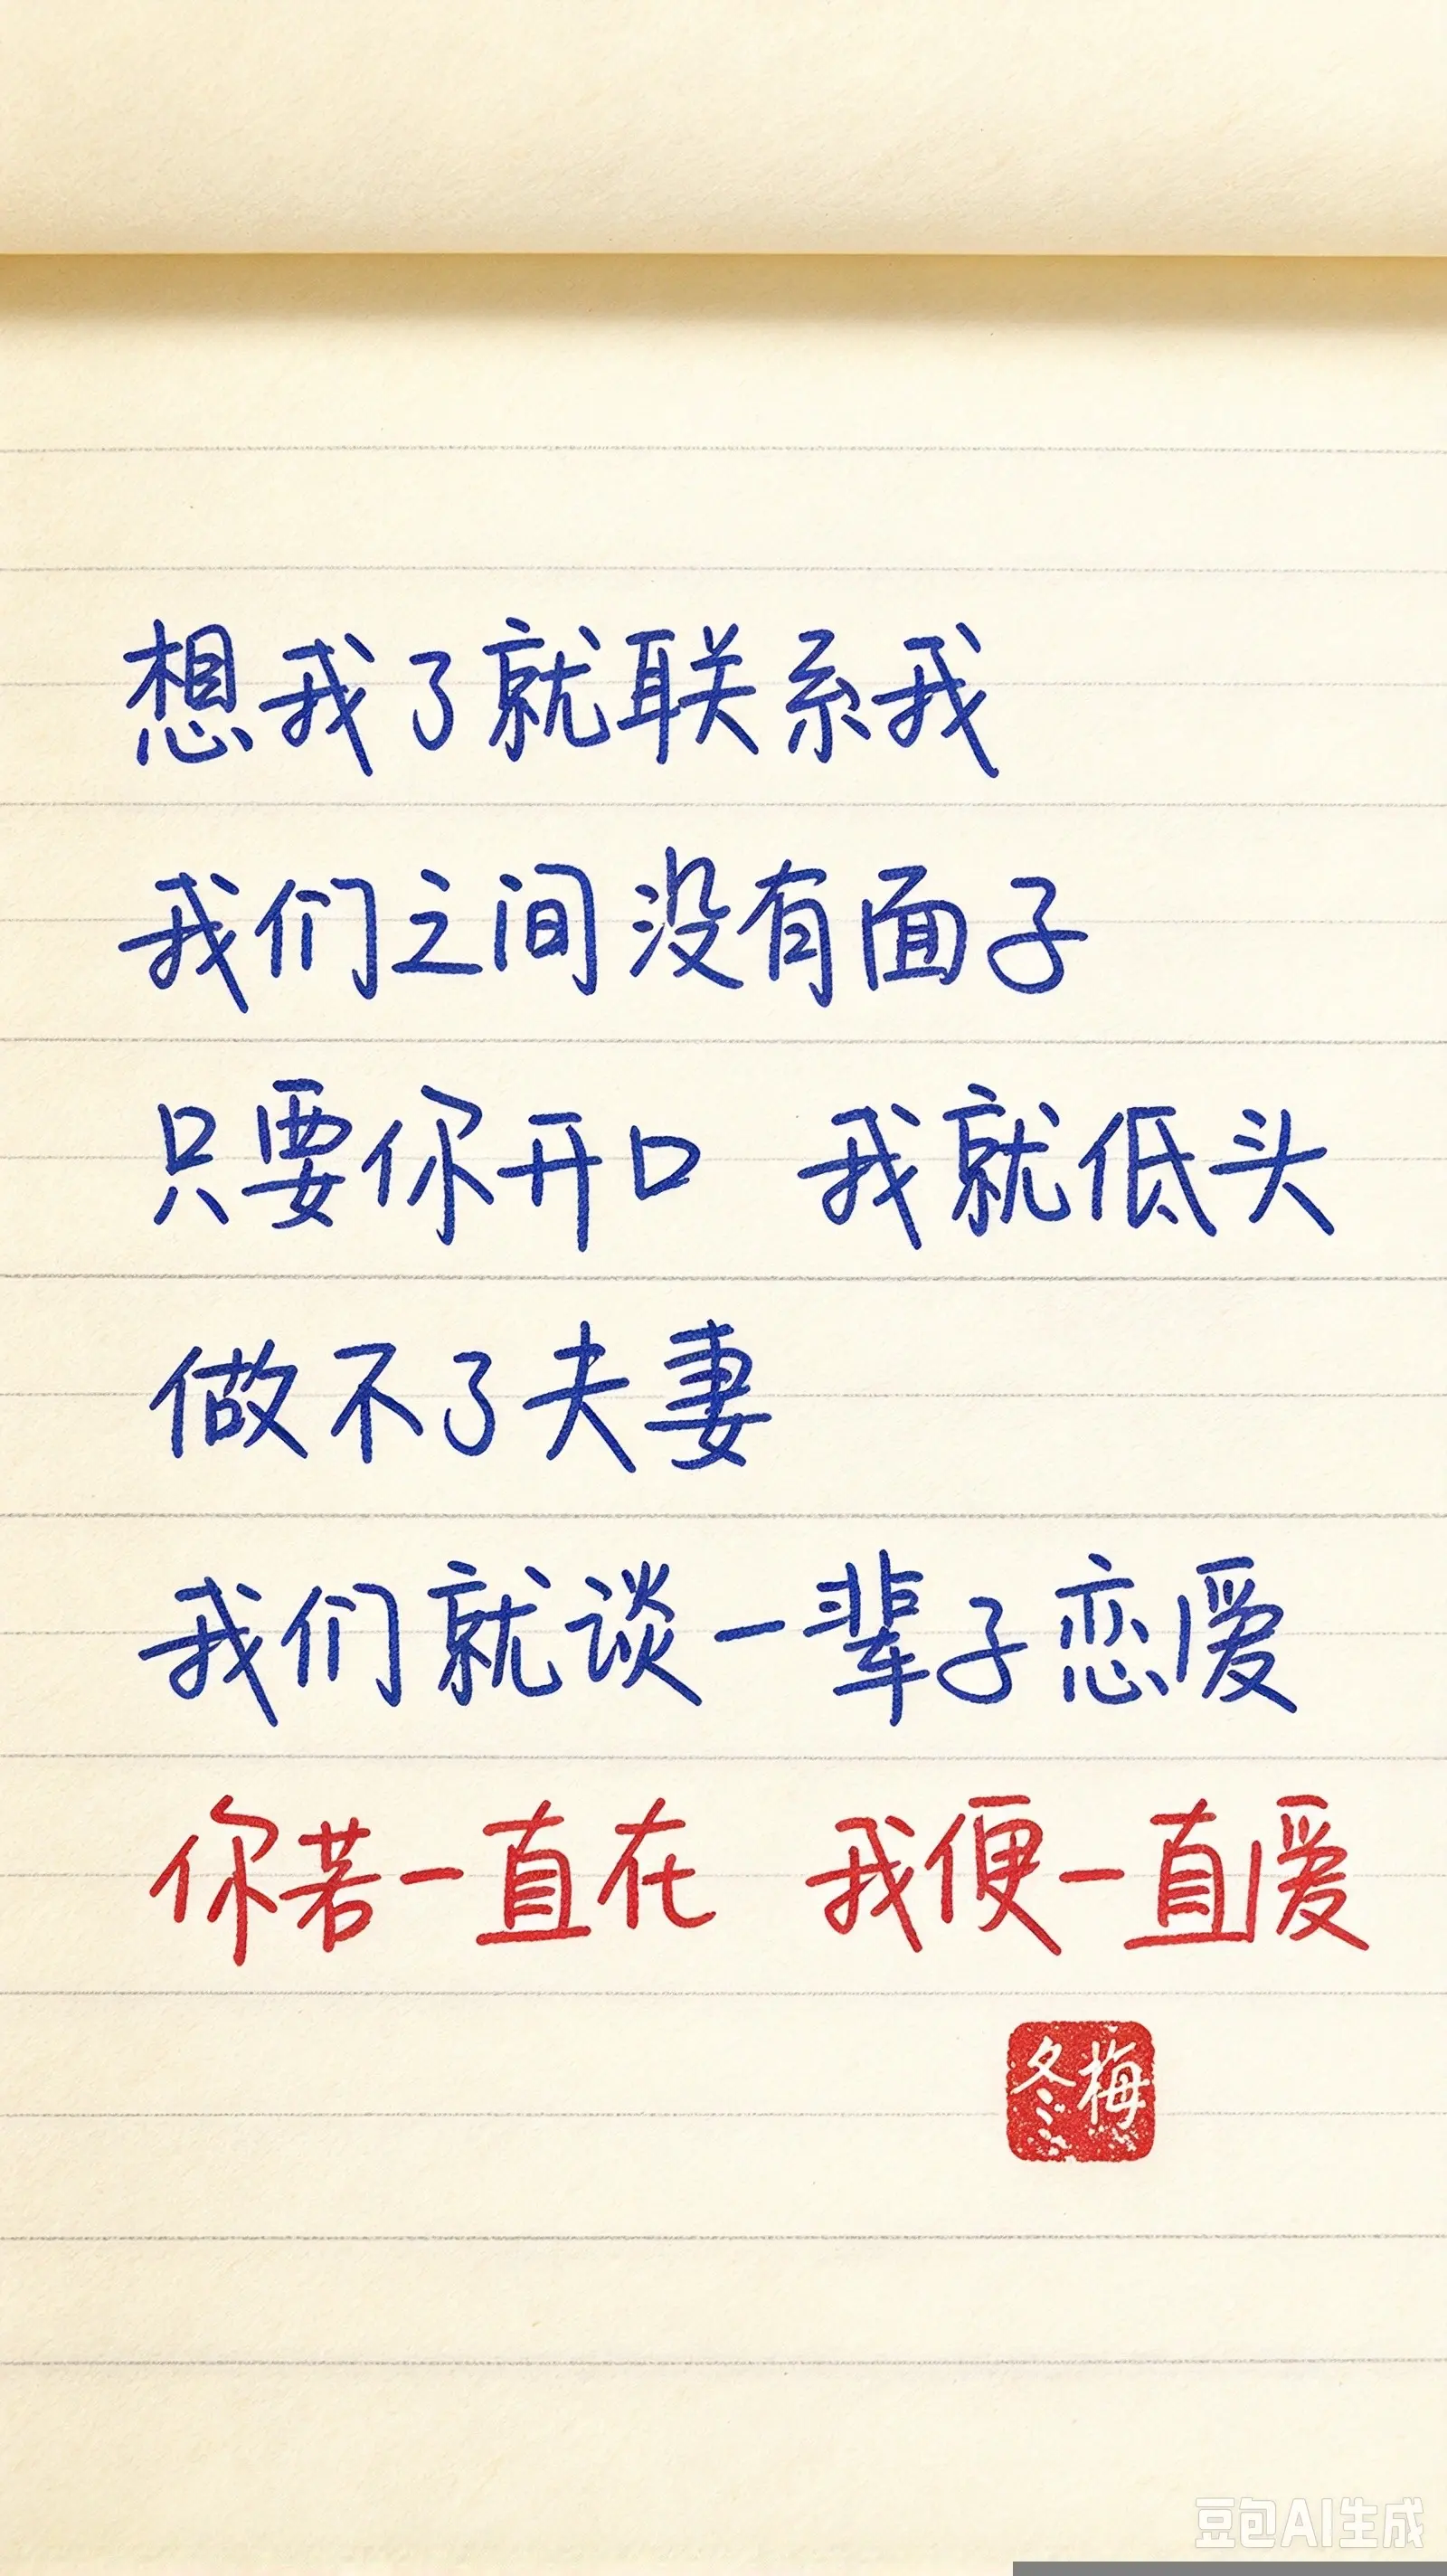 想我了就联系我
我们之间没有面子
只要你开口 我就低头
做不了夫妻
我们就谈一辈子恋爱
你若一直在 我便一直爱
冬梅
豆包AI生成